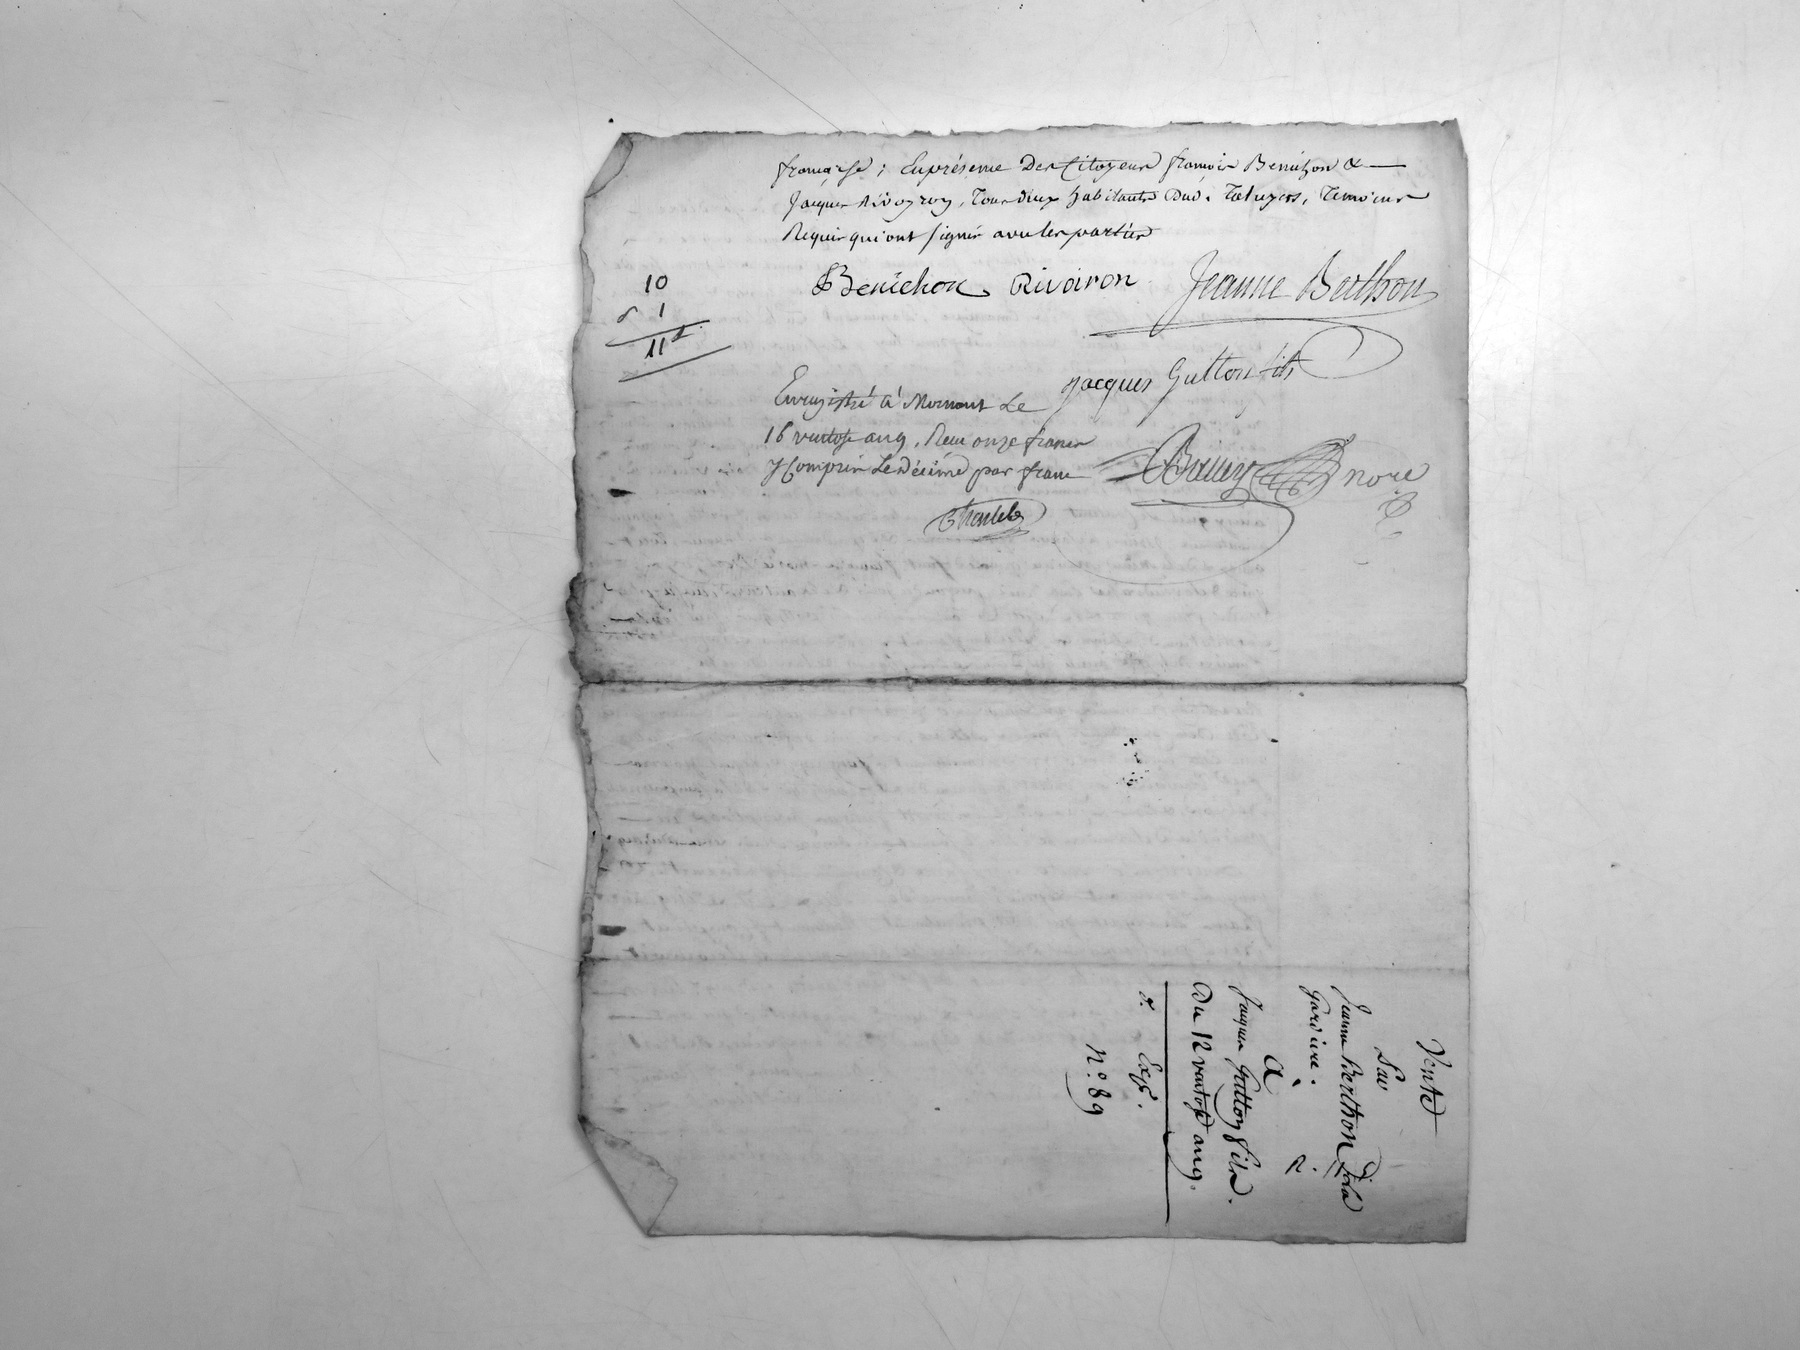 française ; En présence Des Citoyens françois Benichon &
Jacques Rivoyron, Tous deux habitants Dud. Taluyers, Temoins
Requis qui ont signés avec les parties
Benichon Rivoiron Jeanne Berthon
10
1
11
Jacques Gutton fils
Enregistré à Mornant Le
16 ventose an 9. Recu onze francs
y Compris Le Décime par franc
nore
Vente
Par
Jeanne Berthon de la
Gardiere.
à
Jacques Gutton fils.
Du 12 ventose an 9.
Exp.
N.º 89